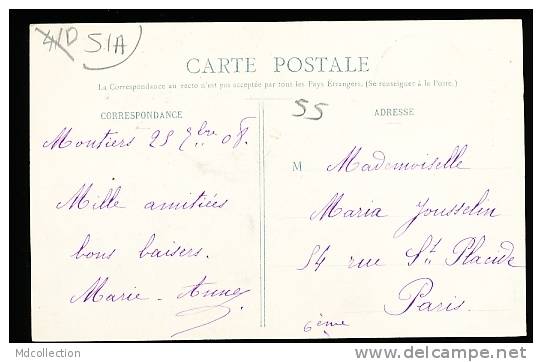 41D 51A
CARTE POSTALE
La Correspondance au recto n'est pas acceptée par tous les Pays Étrangers. (Se renseigner à la Poste.)
CORRESPONDANCE
Montiers 25 7bre 08.
Mille amitiées
bons baisers.
Marie-Anne
55
ADRESSE
M Mademoiselle
Maria Jousselin
54 rue St. Placide
Paris.
6ème
Mdcollection
http://www.delcampe.net